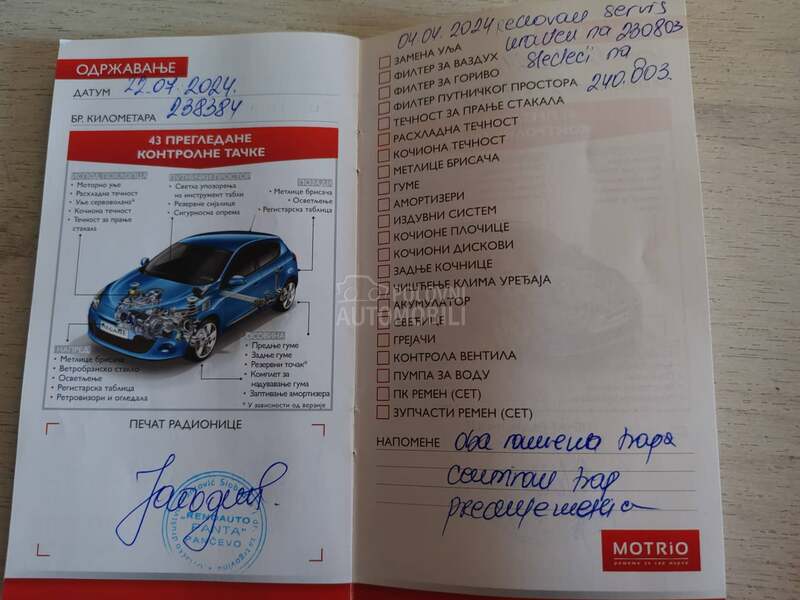 ОДРЖАВАЊЕ
ДАТУМ 22.07.2024.
БР. КИЛОМЕТАРА 238384
43 ПРЕГЛЕДАНЕ
КОНТРОЛНЕ ТАЧКЕ
ИСПОД ПОКЛОПЦА
• Моторно уље
• Расхладна течност
• Уље сервоволана*
• Кочиона течност
• Течност за прање
стакала
ПУТНИЧКИ ПРОСТОР
• Светла упозорења
на инструмент табли
• Резервне сијалице
• Сигурносна опрема
ПОЗАДИ
• Метлице брисача
• Осветљење
• Регистарска таблица
НАПРЕД
• Метлице брисача
• Ветробранско стакло
• Осветљење
• Регистарска таблица
• Ретровизори и огледала
ОСОВИНА
• Предње гуме
• Задње гуме
• Резервни точак*
• Комплет за
надувавање гума
• Заптивање амортизера
* У зависности од верзије
ПЕЧАТ РАДИОНИЦЕ
"RENOAUTO
PANTA"
PANČEVO
04.04.2024 Redovan servis
uradjen na 230803
sledeci na
240.003.
ЗАМЕНА УЉА
ФИЛТЕР ЗА ВАЗДУХ
ФИЛТЕР ЗА ГОРИВО
ФИЛТЕР ПУТНИЧКОГ ПРОСТОРА
ТЕЧНОСТ ЗА ПРАЊЕ СТАКАЛА
РАСХЛАДНА ТЕЧНОСТ
КОЧИОНА ТЕЧНОСТ
МЕТЛИЦЕ БРИСАЧА
ГУМЕ
АМОРТИЗЕРИ
ИЗДУВНИ СИСТЕМ
КОЧИОНЕ ПЛОЧИЦЕ
КОЧИОНИ ДИСКОВИ
ЗАДЊЕ КОЧНИЦЕ
ЧИШЋЕЊЕ КЛИМА УРЕЂАЈА
АКУМУЛАТОР
СВЕЋИЦЕ
ГРЕЈАЧИ
КОНТРОЛА ВЕНТИЛА
ПУМПА ЗА ВОДУ
ПК РЕМЕН (СЕТ)
ЗУПЧАСТИ РЕМЕН (СЕТ)
POLOVNI
AUTOMOBILI
НАПОМЕНЕ
MOTRIO